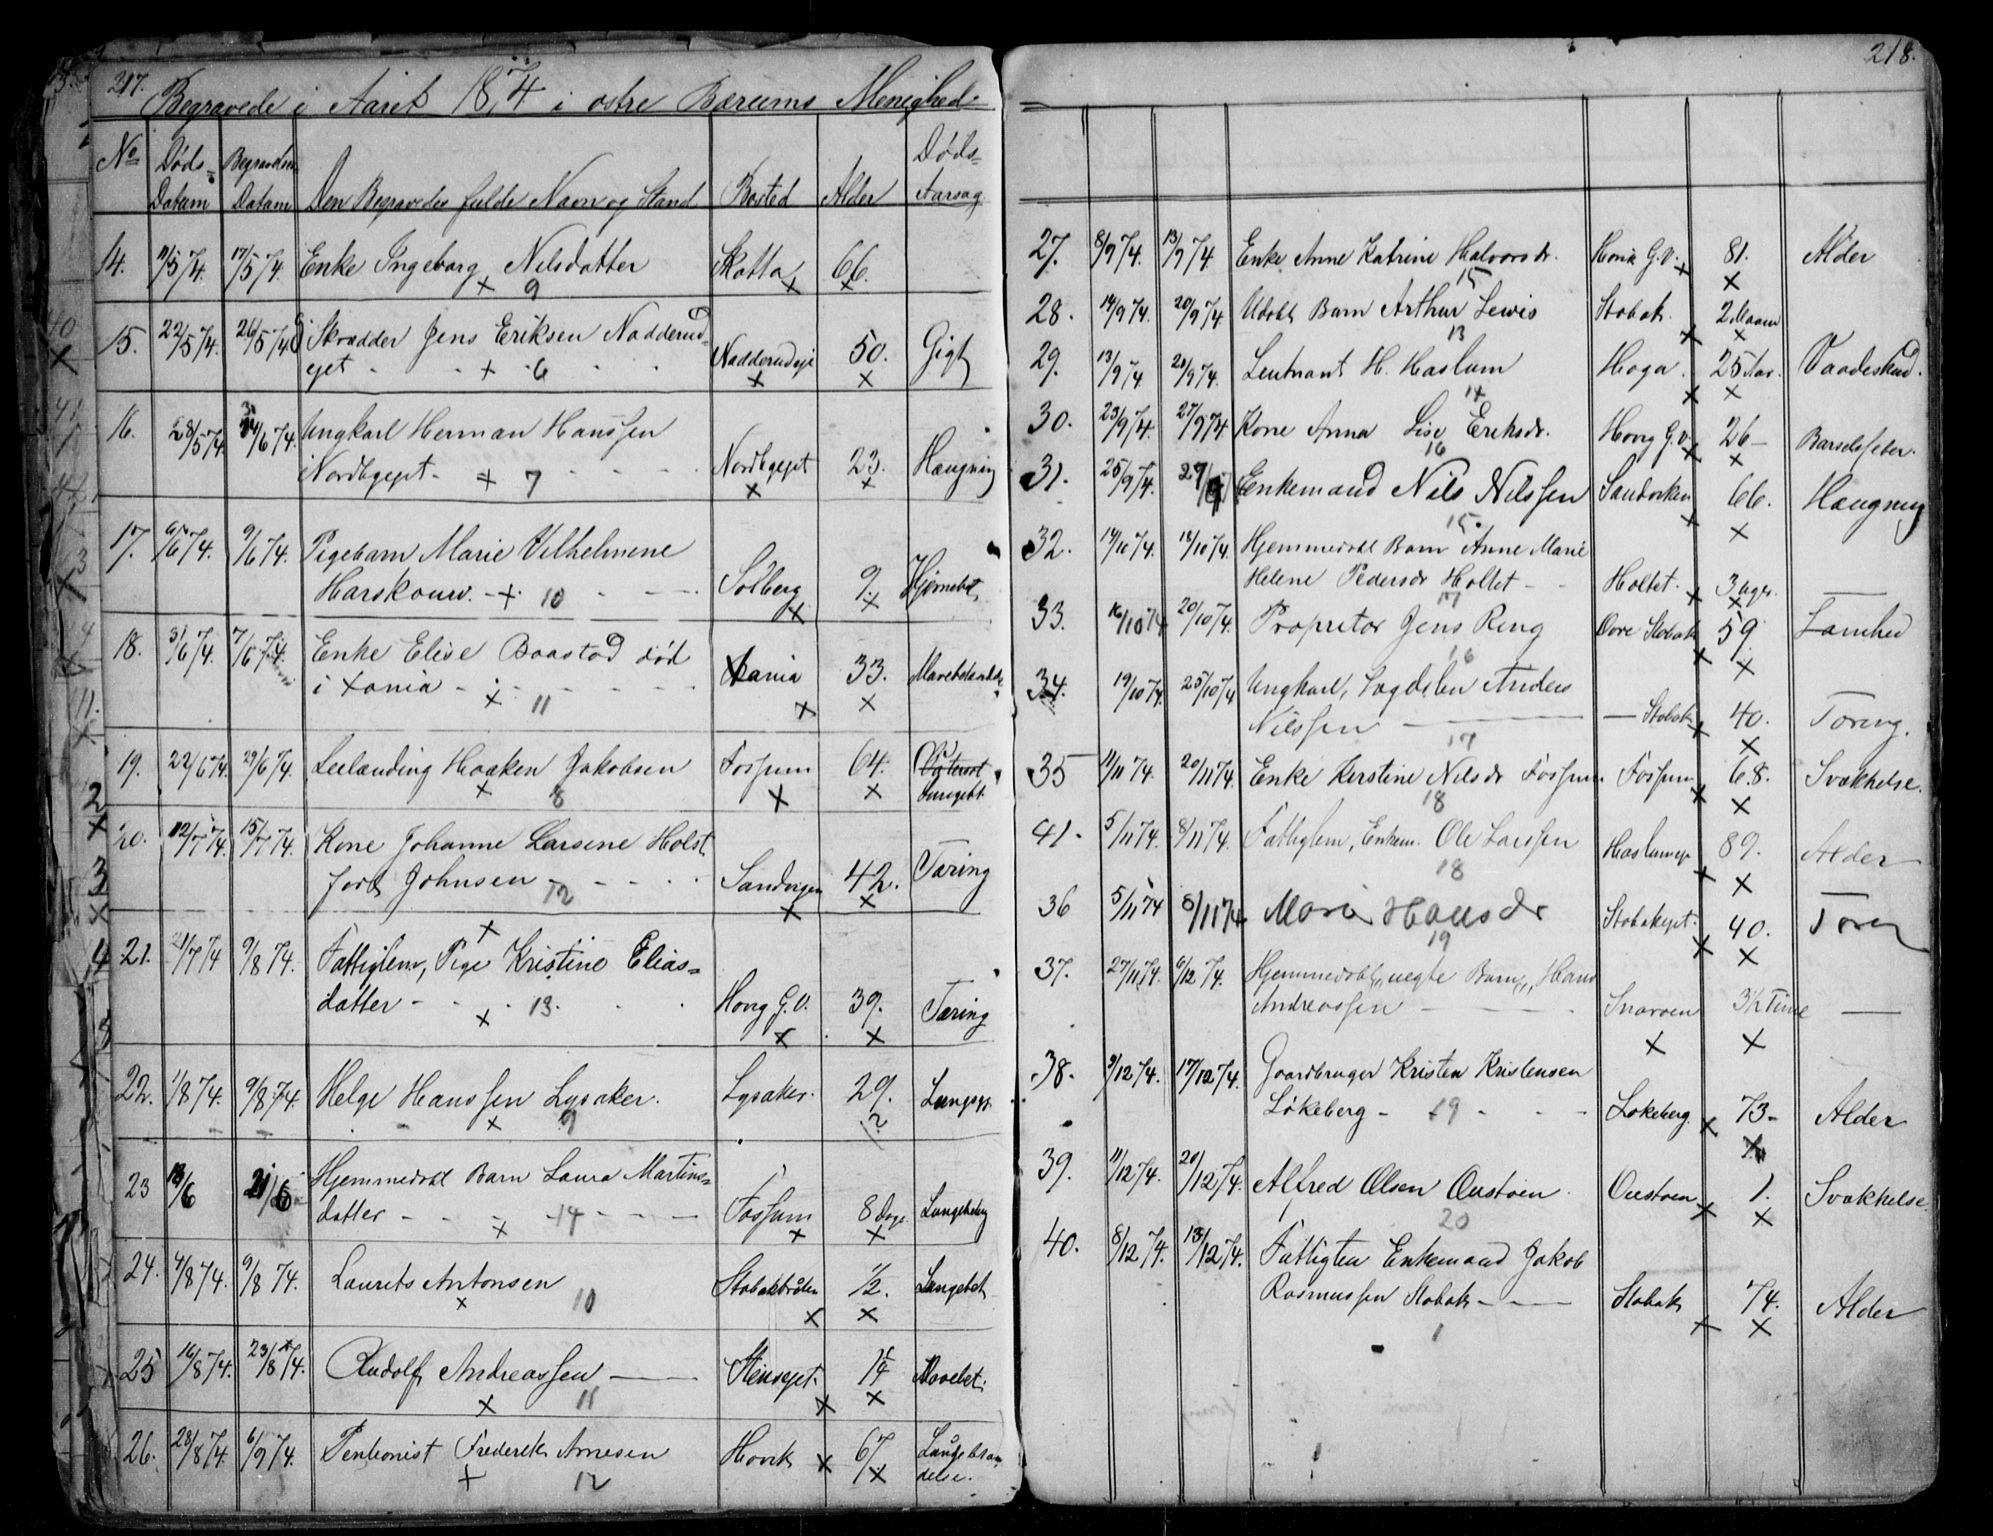 217.
Begravede i Aaret 1874 i østre Bærums Menighed
No Døds- Datum Begravelses Datum Den Begravedes fulde Navn og Stand Bosted Alder Døds- Aarsag
14. 11/5 74. 17/5 74. Enke Ingeborg Nilsdatter Skotta 66.
x 9 x x
15. 22/5 74. 26/5 74 Skrædder Jens Eriksen Nadderud-
ejet - - x 6 Nadderudeje 50. Gigt
x x
16. 28/5 74 14/6 74. Ungkarl Herman Hanssen
Nordbyejet - x 7 - - - Nordbyejet 23. Hængning
x x
17. 6/6 74. 9/6 74. Pigebarn Marie Vilhelmine
Harskouw. - x 10 - - Solberg 9. Hjernebet.
x x
18. 31/6 74. 7/6 74. Enke Elise Baastad død
i Xania - x 11 - - Xania 33. Mavebetændelse
x x
19. 22/6 74. 29/6 74. Leilænding Haaken Jakobsen Fossum 64. Lungebt.
x 8 x x
20. 12/7 74. 15/7 74. Kone Johanne Larsene Holst
født Johnsen - 12 - - Sandvigen 42. Tæring
x x
x
21. 21/7 74 9/8 74. Fattiglem, Pige Kristine Elias-
datter - - x 13. Høvig G.V. 39. Tæring
x x
22. 1/8 74. 9/8 74. Helge Hanssen Lysaker. Lysaker. 29. Lungeb.
x 9 ?
23 13/6 21/6 Hjemmedøbt Barn Laura Martins-
datter - - x 14 - - Fossum 8 Dage Lungebet.
x x
24. 4/8 74. 9/8 74. Laurits Antonsen Stabækbråten 1/2. Lungebet
x 10 x x
25 16/8 74. 23/8 74. Rudolf Andreassen Stensejet. 1/4 Mavebet.
x 11 x x
26. 28/8 74. 6/9 74. Pentionist Frederik Arnesen Høvik x 67 Lungebtæn
x 12 x delse.
218.
27. 8/9 74. 13/9 74. Enke Anne Katrine Halvorsdr. Høvik G.V. 81. Alder
15 x x
28. 14/9 74. 20/9 74. Udøbt Barn Arthur Lewis Stabæk. 2 Maan
13 x
29. 13/9 74 20/9 74. Leutnant H. Haslum Haga. 25 Aar. Vaadeskud.
14 x x
30. 23/9 74. 27/9 74 Kone Anna Lise Eriksdr. Høvig G.V. 26 - Barselfeber.
16 x x
31. 25/9 74. 27/9 Enkemand Nils Nilssen Sandviken 66. Hængning
15 x x
32. 14/10 74. 18/10 74. Hjemmedøbt Barn Anne Marie
Helene Pedersdr Holtet - Holtet. 3 Uger.
17 x x
33. 16/10 74 20/10 74. Proprietær Jens Ring Øvre Stabæk 59 Lamhed
16 x x
34. 19/10 74. 25/10 74 Ungkarl, Anders
Nilssen - Stabæk 40. Tæring.
17 x x
35 11/11 74. 20/11 74. Enke Kerstine Nilsdr Fossum. Fossum 68. Svækkelse.
18 x x
41. 5/11 74. 8/11 74. Fattiglem, Enkem. Ole Larssen Haslumeje 89. Alder
18 x x
36 5/11 74 8/11 74. Marie Hansdr Stabækejet. 40. Tæring
19 x x
37. 27/11 74. 6/12 74. Hjemmedøbt, uegte Barn, Hans
Andreassen Snarøen 3 1/2 Time -
x x
38. 9/12 74. 17/12 74. Gaardbruger Kristen Kristensen
Løkeberg - 19 - - Løkeberg. 73 - Alder
x x
39. 11/12 74. 20/12 74. Alfred Olsen Oustøen. Oustøen 1. Svækkelse
20 x x
40. 8/12 74. 13/12 74. Fattiglem Enkemand Jakob
Rasmussen Stabæk - Stabæk 74. Alder
1 x x